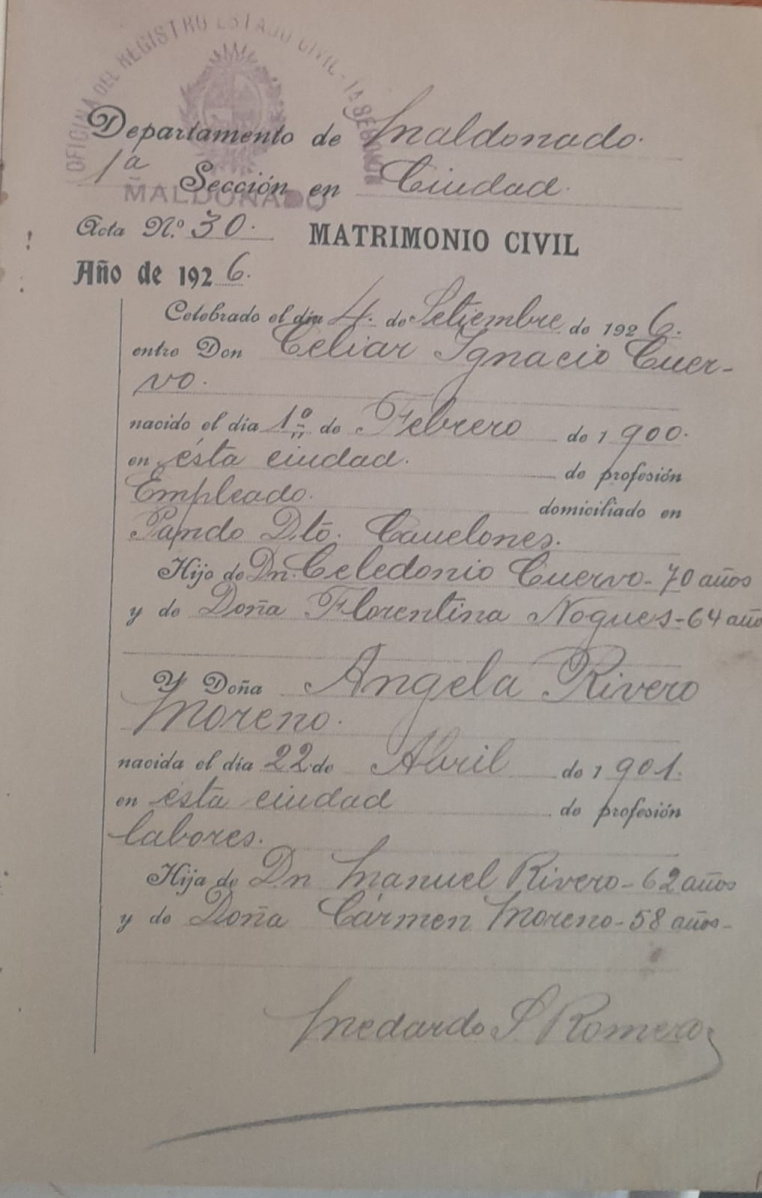 OFICINA DEL REGISTRO ESTADO CIVIL - 1ª SECCION
MALDONADO
Departamento de Maldonado.
1ª Sección en Ciudad.
Acta N.º 30. MATRIMONIO CIVIL
Año de 1926.
Celebrado el día 4. de Setiembre de 1926.
entre Don Celiar Ignacio Cuer-
vo.
nacido el día 1º de Febrero de 1900.
en ésta ciudad. de profesión
Empleado. domiciliado en
Pando Dto. Canelones.
Hijo de Dn. Celedonio Cuervo - 70 años
y de Doña Florentina Nogues - 64 años
Y Doña Angela Rivero
Moreno.
nacida el día 22 de Abril de 1901.
en esta ciudad de profesión
labores.
Hija de Dn Manuel Rivero - 62 años
y de Doña Cármen Moreno - 58 años -
Medardo S. Romero